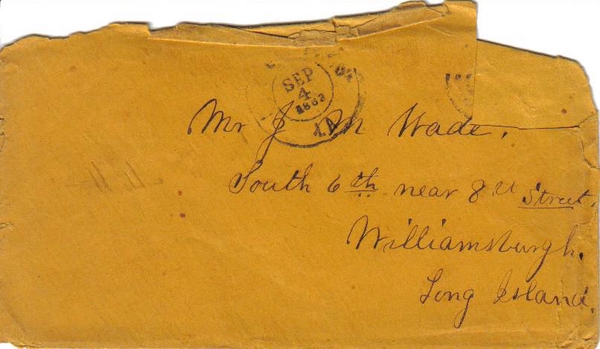 SEP
4
1862
LA
Mr J M Wade.
South 6th near 8th Street.
Williamsburgh.
Long Island.